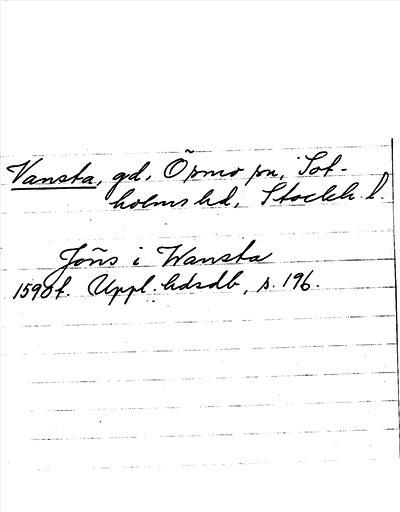 Vansta, gd, Ösmo sn, Sot-
holms hd, Stockh. l.
Jöns i Wansta
1590 t. Uppl. hdsdb, s. 196.